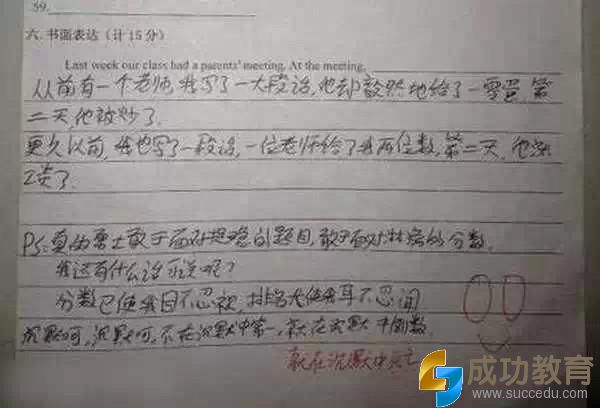 59.
六. 书面表达（计15分）
Last week our class had a parents' meeting. At the meeting,
从前有一个老师,我写了一大段话,他却毅然地给了一零蛋,第
二天,他被炒了.
更久以前,我也写了一段话,一位老师给了我两位数,第二天,他涨
工资了.
PS:真的勇士敢于面对提稳的题目,敢于面对林病的分数.
我还有什么话可说呢?
分数已使我目不忍视,排名尤使我耳不忍闻
沉默呵,沉默呵,不在沉默中第一,就在沉默中倒数.
就在沉默中死亡
成功教育
www.succedu.com